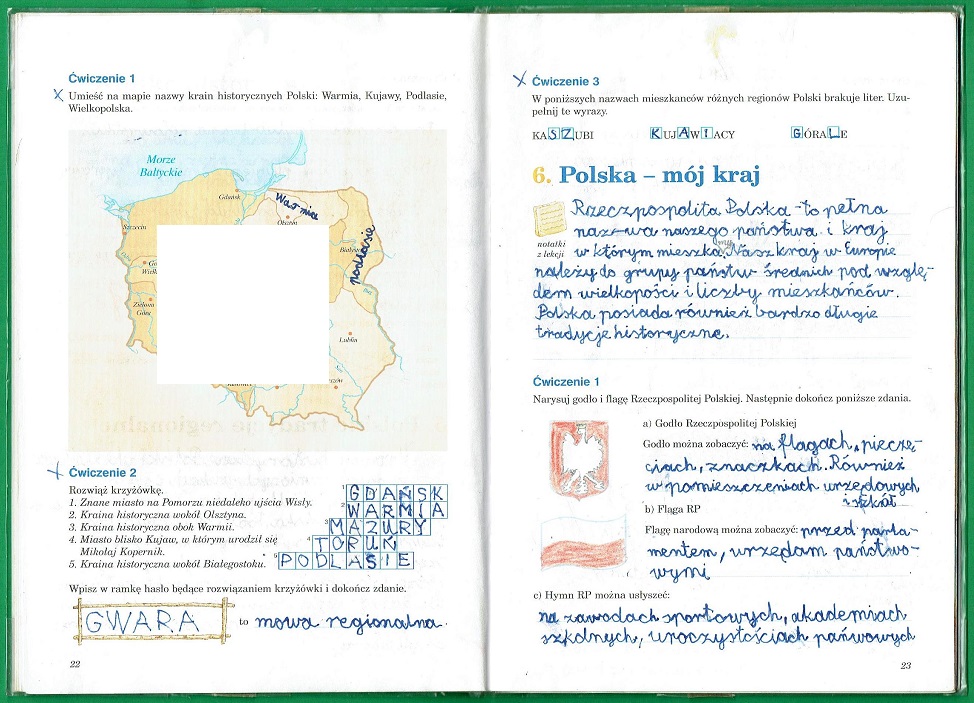 Ćwiczenie 1
x Umieść na mapie nazwy krain historycznych Polski: Warmia, Kujawy, Podlasie,
Wielkopolska.
Morze
Bałtyckie
Gdańsk
Warmia
Olsztyn
Szczecin
podlasie
Zielona
Góra
Lublin
x Ćwiczenie 2
Rozwiąż krzyżówkę.
1. Znane miasto na Pomorzu niedaleko ujścia Wisły.
2. Kraina historyczna wokół Olsztyna.
3. Kraina historyczna obok Warmii.
4. Miasto blisko Kujaw, w którym urodził się
Mikołaj Kopernik.
5. Kraina historyczna wokół Białegostoku.
1 GDAŃSK
2 WARMIA
3 MAZURY
4 TORUŃ
5 PODLASIE
Wpisz w ramkę hasło będące rozwiązaniem krzyżówki i dokończ zdanie.
GWARA to mowa regionalna.
22
x Ćwiczenie 3
W poniższych nazwach mieszkańców różnych regionów Polski brakuje liter. Uzu-
pełnij te wyrazy.
KASZUBI KUJAWIACY GÓRALE
6. Polska – mój kraj
notatki
z lekcji
Rzeczpospolita Polska - to pełna
nazwa naszego państwa i kraj
w którym mieszka. Nasz kraj w Europie
należy do grupy państw średnich pod wzglę-
dem wielkopości i liczby mieszkańców.
Polska posiada również bardzo długie
tradycje historyczne.
Ćwiczenie 1
Narysuj godło i flagę Rzeczpospolitej Polskiej. Następnie dokończ poniższe zdania.
a) Godło Rzeczpospolitej Polskiej
Godło można zobaczyć: na flagach, pieczę-
ciach, znaczkach. Również
w pomieszczeniach urzędowych
i szkół
b) Flaga RP
Flagę narodową można zobaczyć: przed parla-
mentem, urzędam państwo-
wymi
c) Hymn RP można usłyszeć:
na zawodach sportowych, akademiach
szkolnych, uroczystościach pańwowych
23